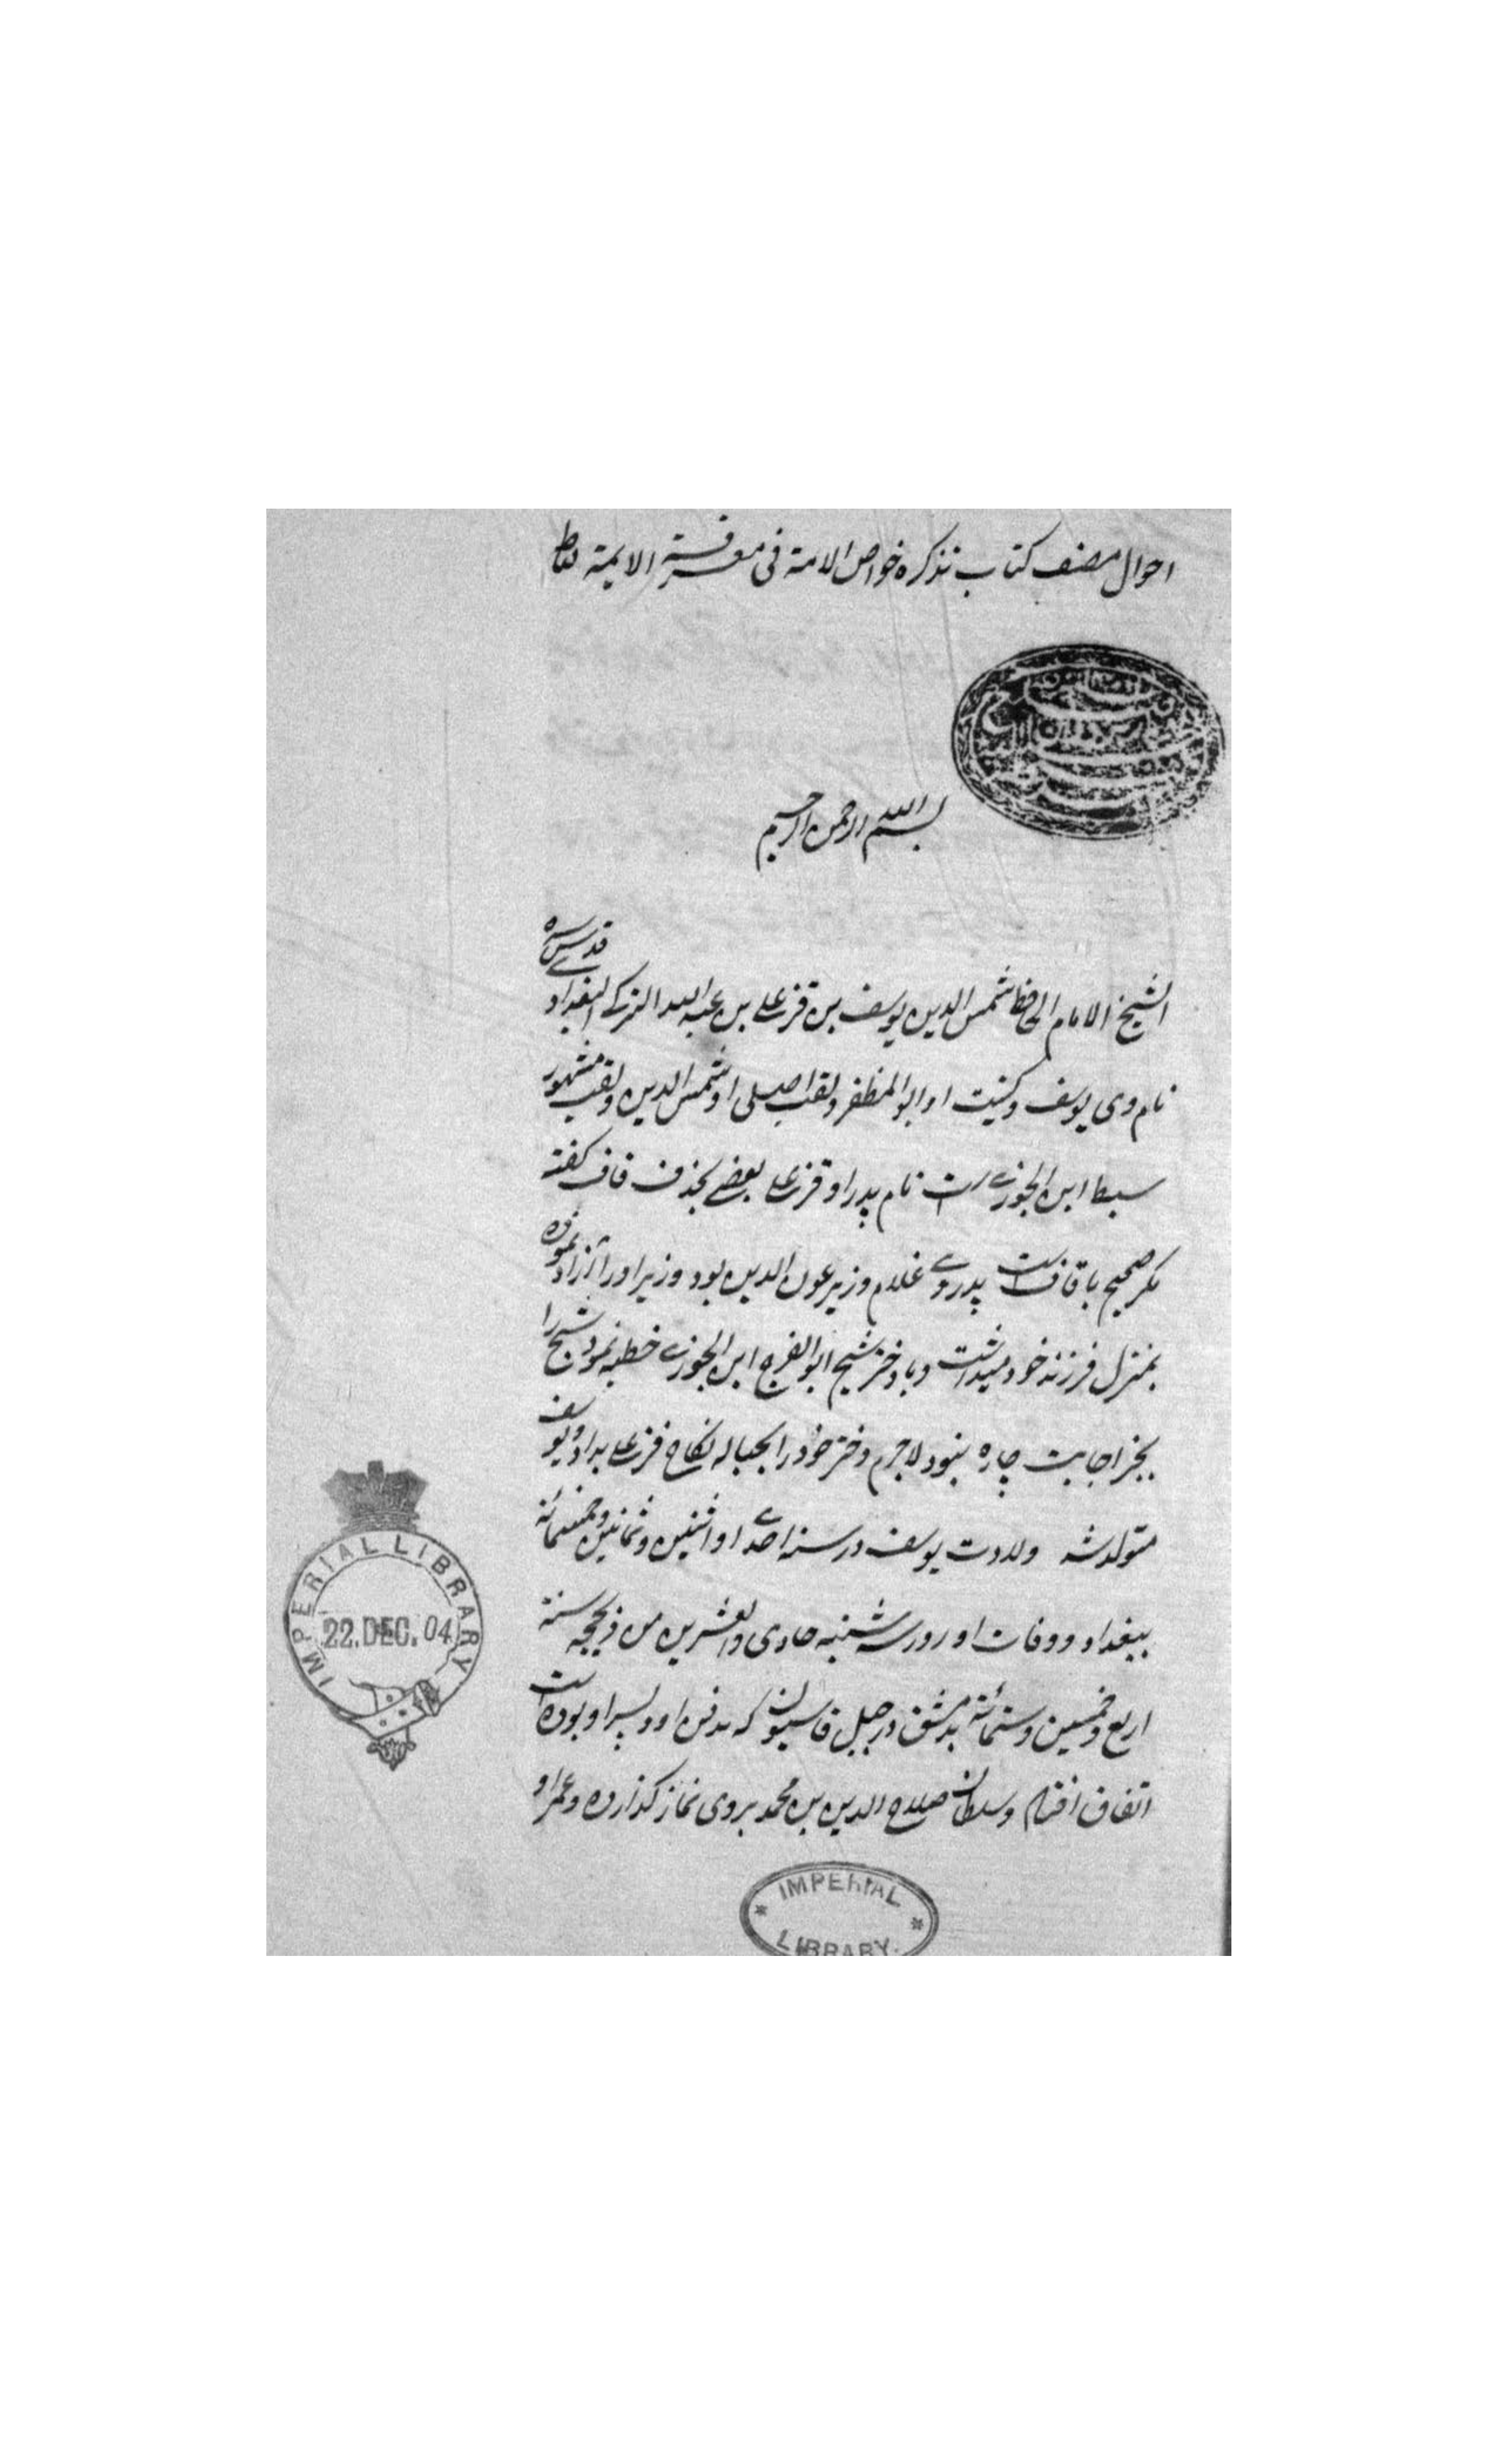 احوال مصنف کتاب تذکره خواص الامة فی معرفة الایمة
بسم الله الرحمن الرحیم
الشیخ الامام الحافظ شمس الدین یوسف بن قزعلی بن عبد الله الترکی البغدادی قدس سره
نام وی یوسف و کنیت او ابو المظفر و لقب اصلی او شمس الدین و لقب مشهور
سبط ابن الجوزی است نام پدر او قزعلی بعضی بحذف قاف گفته
مگر صحیح با قاف است پدر وی غلام وزیر عون الدین بود وزیر او را آزاد نموده
بمنزل فرزند خود میداشت و با دختر شیخ ابو الفرج ابن الجوزی خطبه نمود شیخ را
بجز اجابت چاره نبود لاجرم دختر خود را بحباله نکاح قزعلی بداد و یوسف
متولد شد ولادت یوسف در سنه احدی او اثنین و ثمانین و خمسمائة
ببغداد و وفات او روز سه شنبه حادی والعشرین من ذیحجه سنة
اربع و خمسین و ستمائة بدمشق در جبل قاسیون که مدفن او و پسر او بوده است
اتفاق افتاد و سلطان صلاح الدین بن محمد بروی نماز گذارده و عمر او
IMPERIAL LIBRARY
22.DEC.04
IMPERIAL
LIBRARY.